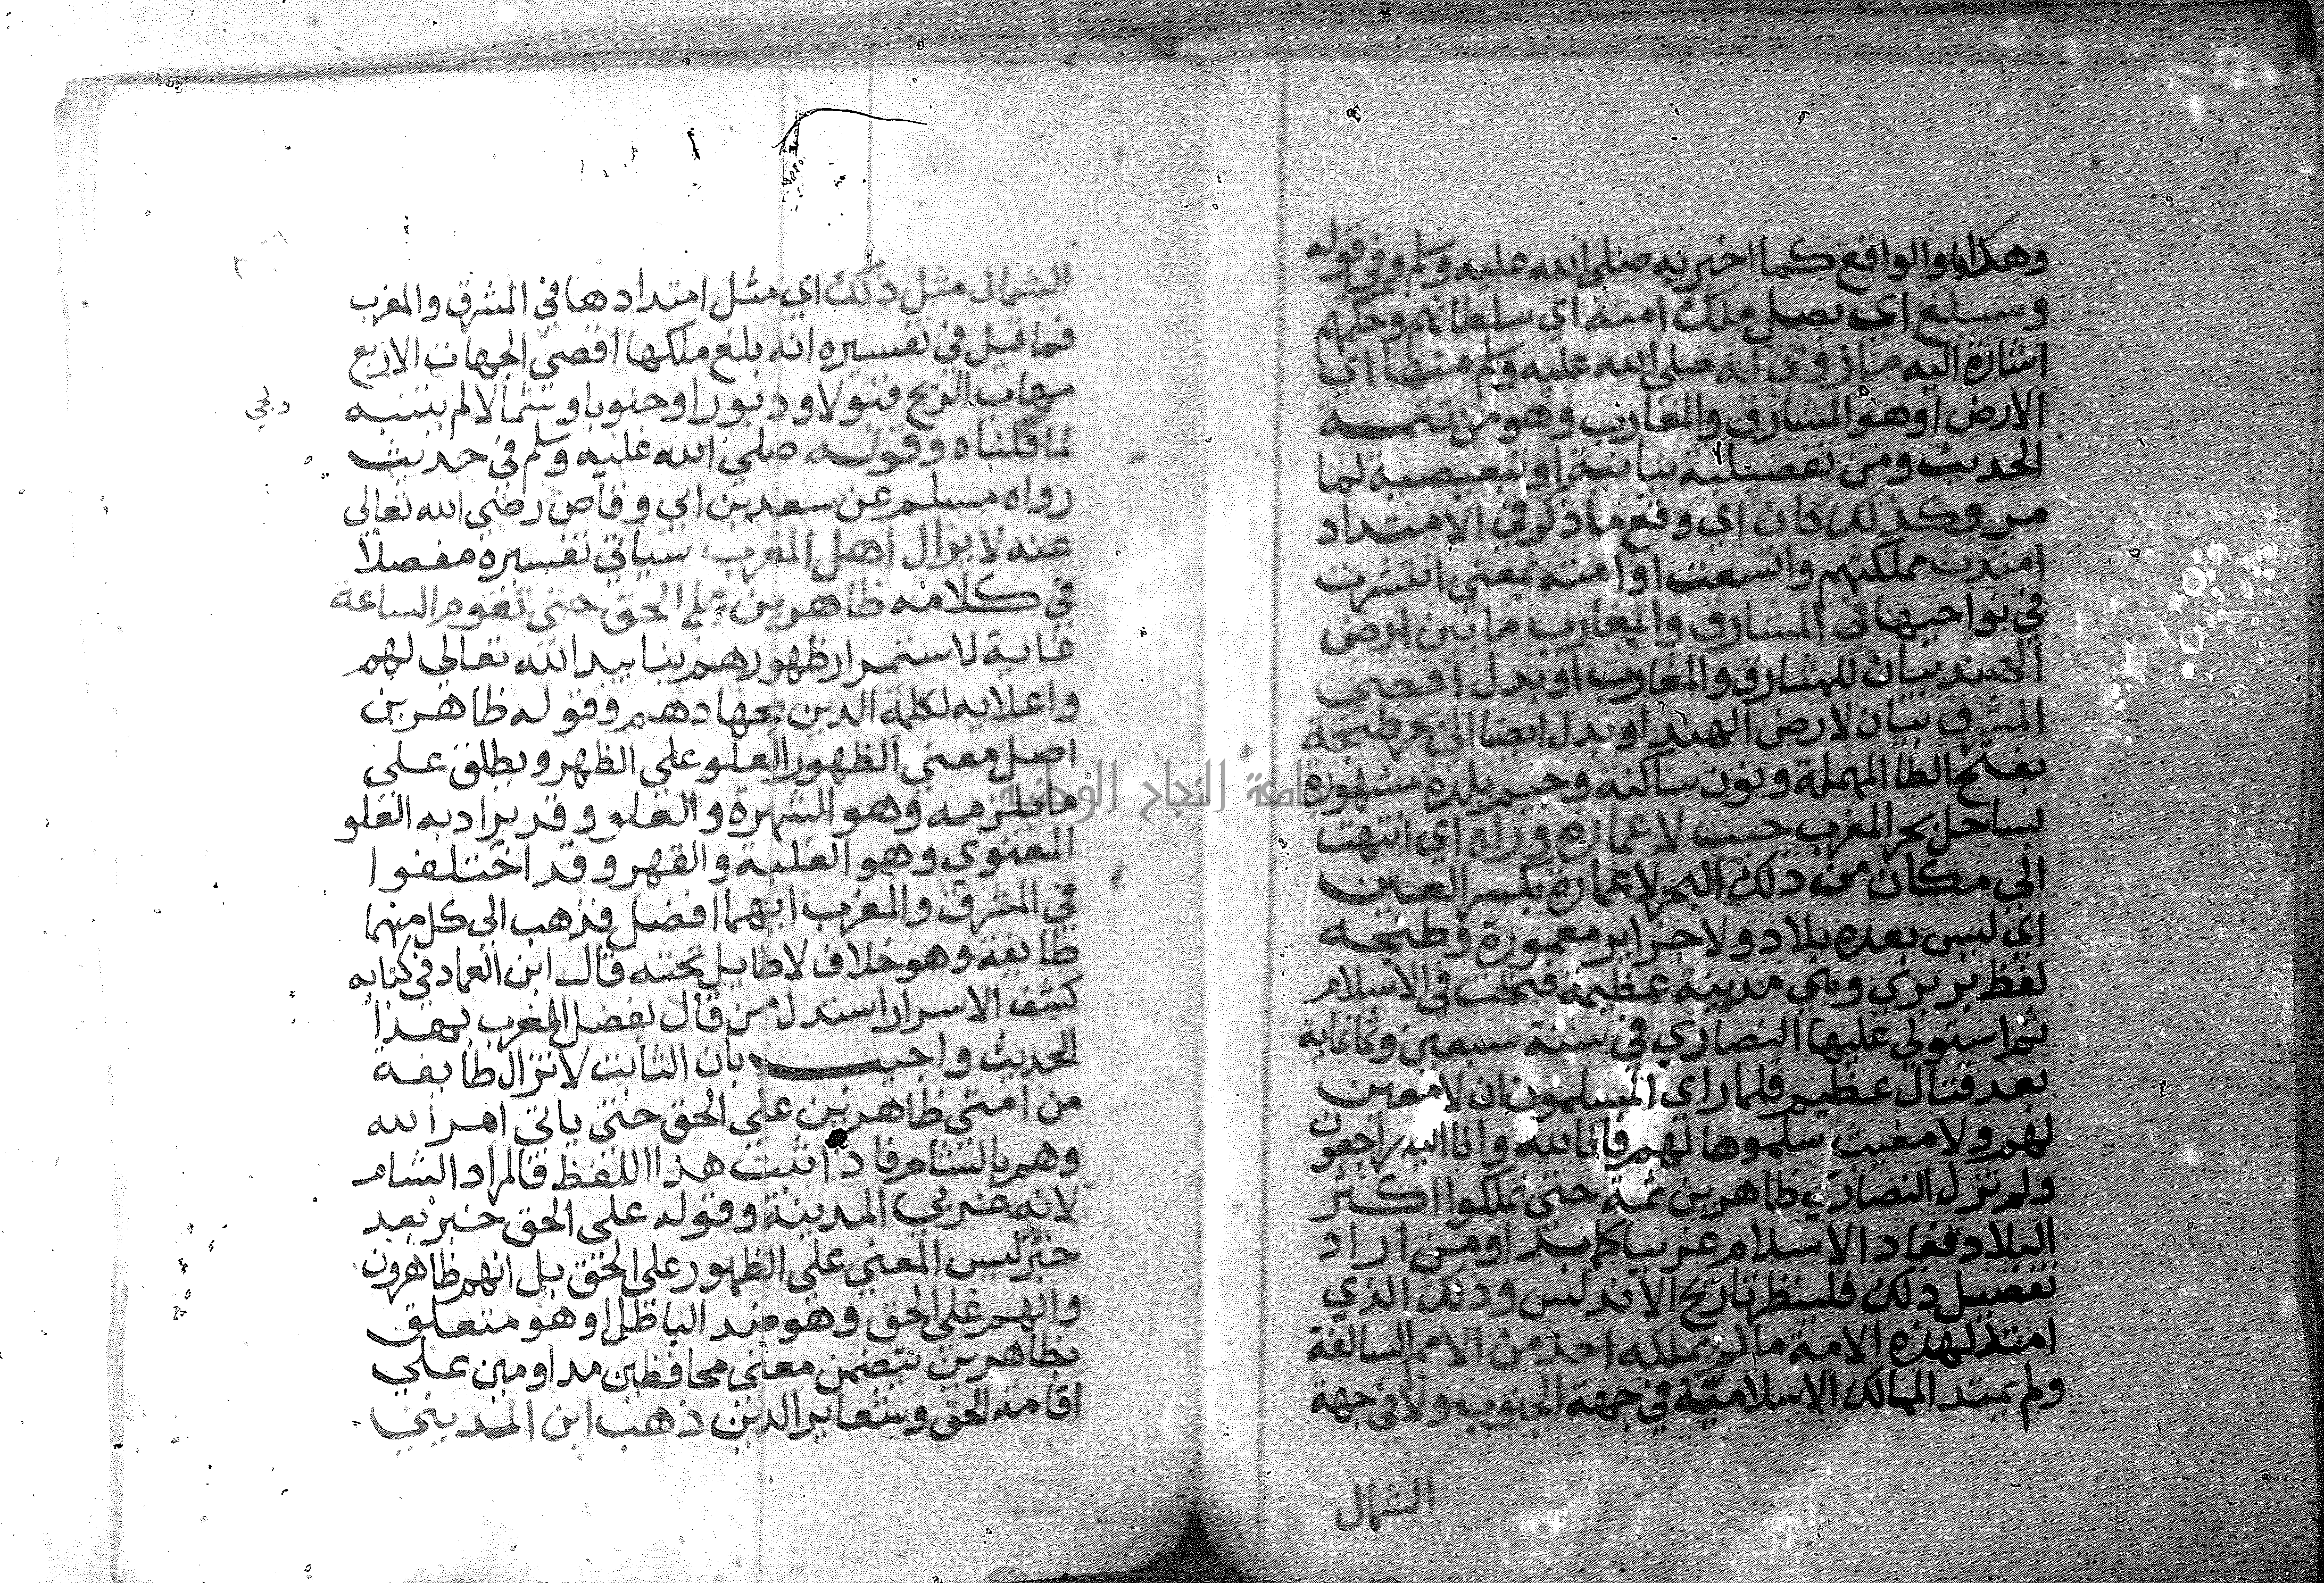 وهكذا هو الواقع كما اخبر به صلى الله عليه وسلم وفي قوله
وسيبلغ اي يصل ملك امته اي سلطانهم وحكمهم
اشارة اليه ما زوى له صلى الله عليه وسلم منها اي
الارض او هو المشارق والمغارب وهو من تتمة
الحديث ومن تفصيلية بيانية او تبعيضية لما
مر وكذلك كان اي وقع ما ذكر في الامتداد
امتدت مملكتهم واتسعت او امته بمعنى انتشرت
في نواحيها في المشارق والمغارب ما بين ارض
الهند بيان للمشارق والمغارب او بدل اقصى
المشرق بيان لارض الهند او بدل ايضا الى بحر طنجة
بفتح الطا المهملة ونون ساكنة وجيم بلدة مشهورة
بساحل بحر المغرب حيث لا عمارة وراه اي انتهت
الى مكان من ذلك البحر لا عمارة بكسر العين
اي ليس بعده بلاد ولا جزاير معمورة وطنجه
لفظ بربري وهي مدينة عظيمة فتحت في الاسلام
ثم استولى عليها النصارى في سنة سبعين وثمانماية
بعد قتال عظيم فلما راي المسلمون ان لا معين
لهم ولا مغيث سلموها لهم فانا لله وانا اليه راجعون
ولم تزل النصارى ظاهرين ثمة حتى تملكوا اكثر
البلاد فعاد الاسلام غريبا كما بدا ومن اراد
تفصيل ذلك فلينظر تاريخ الاندلس وذلك الذي
امتد لهذه الامة ما لم يملكه احد من الامم السالفة
ولم يمتد الممالك الاسلامية في جهة الجنوب ولا في جهة
الشمال
الشمال مثل ذلك اي مثل امتدادها في المشرق والمغرب
فما قيل في تفسيره انه بلغ ملكها اقصى الجهات الاربع
مهاب الريح قبولا ودبورا وجنوبا وشمالا لم يتنبه
دلجي
لما قلناه وقوله صلى الله عليه وسلم في حديث
رواه مسلم عن سعد بن ابي وقاص رضي الله تعالى
عنه لا يزال اهل المغرب سياتي تفسيره مفصلا
في كلامه ظاهرين على الحق حتى تقوم الساعة
غاية لاستمرار ظهورهم بتاييد الله تعالى لهم
واعلايه لكلمة الدين بجهادهم وقوله ظاهرين
اصل معنى الظهور العلو على الظهر ويطلق على
ما يلزمه وهو الشهرة والعلو وقد يراد به العلو
المعنوي وهو الغلبة والقهر وقد اختلفوا
في المشرق والمغرب ايهما افضل فذهب الى كل منهما
طايفة وهو خلاف لا طايل تحته قال ابن العماد في كتابه
كشف الاسرار استدل من قال بفضل المغرب بهذا
الحديث واجيب بان الثابت لا تزال طايفة
من امتي ظاهرين على الحق حتى ياتي امر الله
وهم بالشام فاذا ثبت هذا اللفظ فالمراد الشام
لانه غربي المدينة وقوله على الحق خبر بعد
خبر ليس المعنى على الظهور على الحق بل انهم ظاهرون
وانهم على الحق وهو ضد الباطل او هو متعلق
بظاهرين بتضمن معنى محافظين مداومين على
اقامة الحق وشعاير الدين ذهب ابن المديني
جامعة النجاح الوطنية